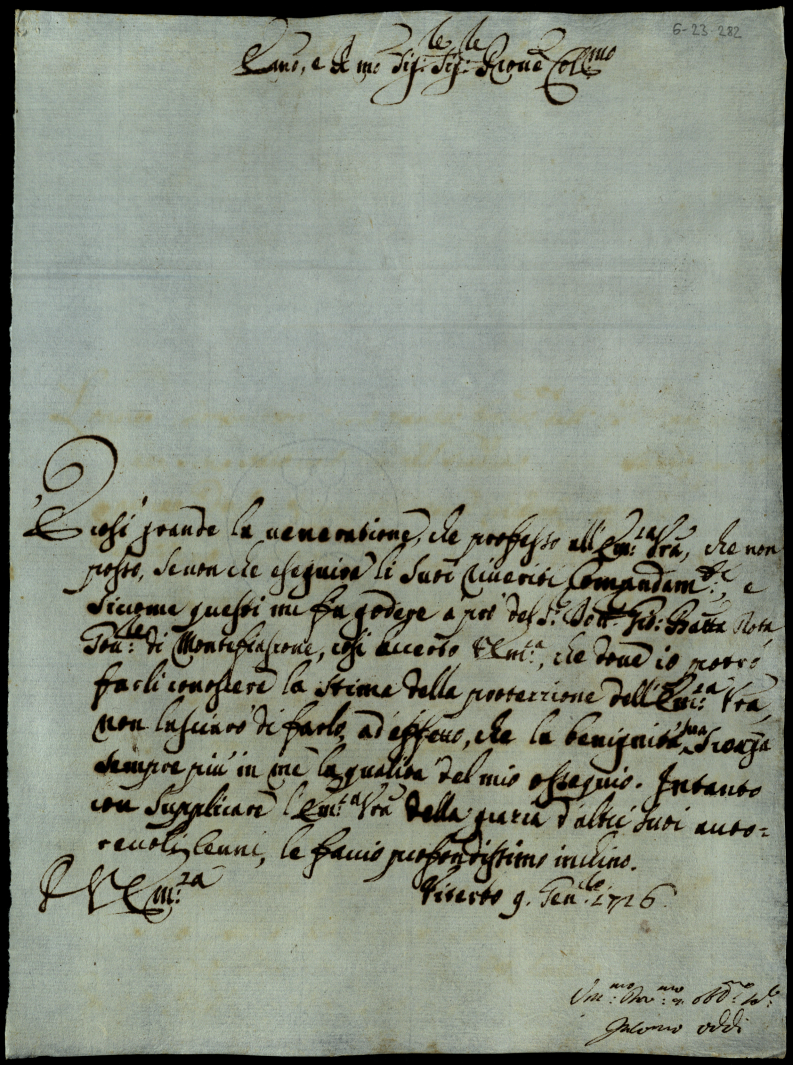 6-23-282
Em̃o, e R mo Sig.re Sig.re Prone Coll.mo
È così grande la veneratione, che professo all'Em.za Vrã, che non
posso, se non che eseguire li suoi riveriti Comandam.ti, e
siccome questi mi fa godere a prò del S.r Dott.r Gio: Batta Rota
di Montefiascone, così accerto V Em.a, che dove io potrò
farli conoscere la stima della protezzione dell'Em.za Vrã,
non lascierò di farlo, ad effetto, che la benignità sua scorga
sempre più in me la qualità del mio ossequio. Intanto
con supplicare l'Em.za Vrã della grazia d'altri suoi auto=
revoli cenni, le faccio profondissimo inchino.
D V Em.za
Viterbo 9. Gen.ro 1726.
Um.mo Dev.mo obb.mo
Giacomo Oddi